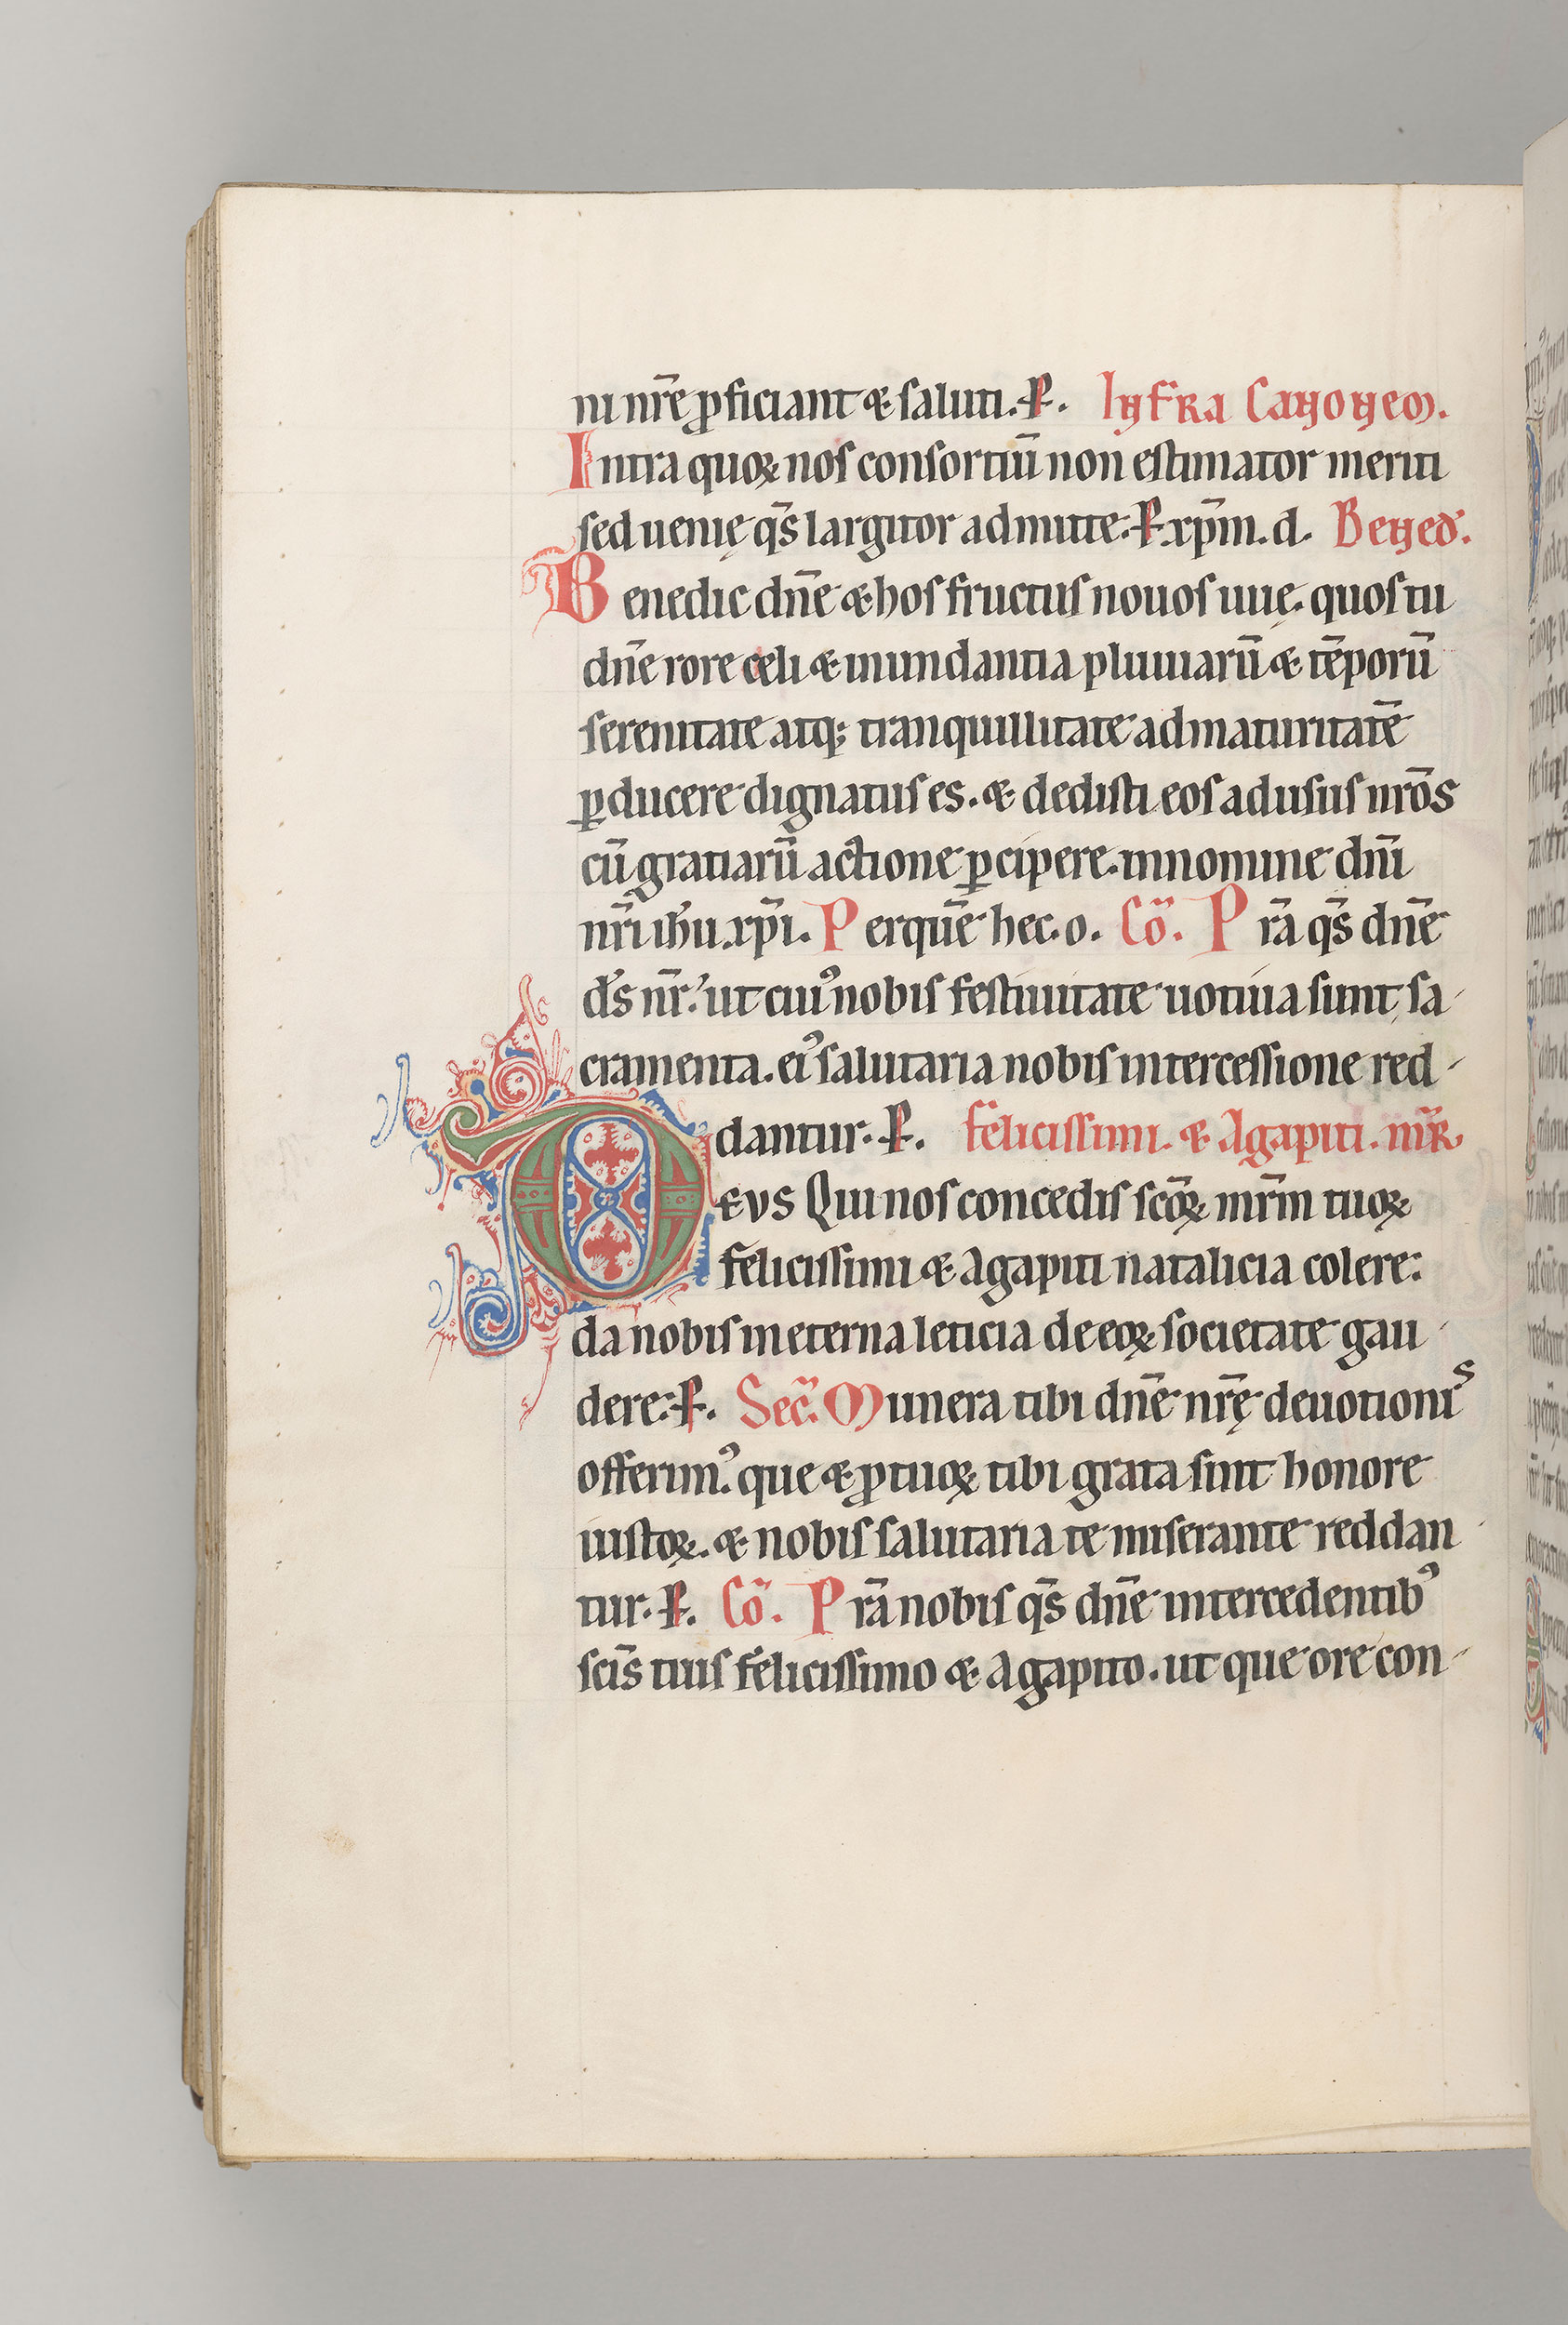 ni nr̄e ꝓficiant & saluti. P̶. Infra Canonem.
Intra quoꝝ nos consortiū non estimator meriti
sed uenię q̄s largitor admitte. P̶. xp̄m. d. Bened̄.
Benedic dn̄e & hos fructus nouos uuę. quos tu
dn̄e rore celi & inundantia pluuiarū & tēporū
serenitate atq; tranquillitate ad maturitatē
ꝑducere dignatus es. & dedisti eos ad usus nr̄os
cū gratiarū actione ꝑcipere. in nomine dn̄i
nr̄i ih̄u xp̄i. Per quē hec. o. Cō. Pr̄a q̄s dn̄e
d̄s nr̄. ut cuiꝰ nobis festiuitate uotiua sunt sa-
cramenta. eiꝰ salutaria nobis intercessione red-
dantur. P̶. felicissimi. & Agapiti. mr̄̄
DEVS Qui nos concedis sc̄oꝝ mr̄m tuoꝝ
felicissimi & Agapiti natalicia colere:
da nobis in eterna leticia de eoꝝ societate gau-
dere: P̶. Sec̄. Munera tibi dn̄e nr̄ę deuotionis
offerimꝰ. que & ꝓ tuoꝝ tibi grata sint honore
iustoꝝ. & nobis salutaria te miserante reddan-
tur. P̶. Cō. Pr̄a nobis q̄s dn̄e intercedentibꝰ
sc̄is tuis felicissimo & Agapito. ut que ore con-